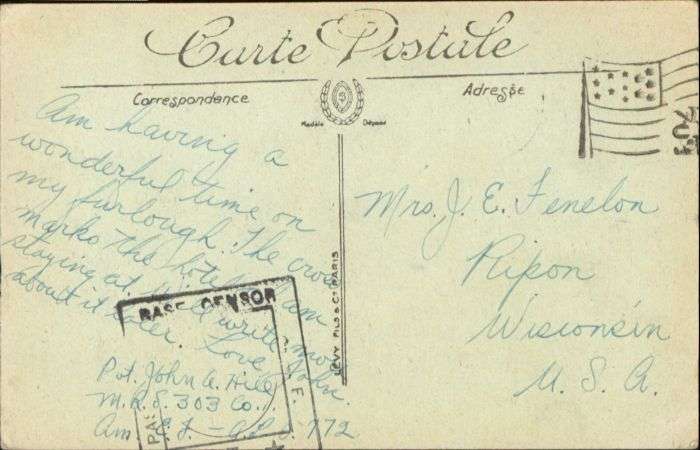 Carte Postale
Correspondance
Adresse
Modèle Déposé
704
Am having a
wonderful time on
my furlough. The cross
marks the hotel I am
staying at. Will write more
about it later. Love, John.
Pvt. John A. Hill
M.R.S. 303 Co.
Am. E. F. - A.P.O. 772
BASE CENSOR
PAS
A. E. F.
LEVY FILS & Cie PARIS
Mrs. J. E. Fenelon
Ripon
Wisconsin
U. S. A.